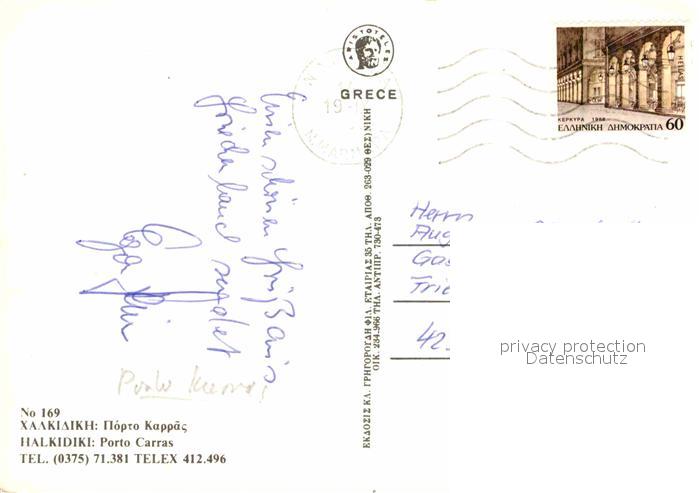 ARISTOTELES
GREECE
ΚΕΡΚΥΡΑ 1988
ΕΛΛΗΝΙΚΗ ΔΗΜΟΚΡΑΤΙΑ 60
Einen schönen Gruß aus
Griechenland sendet
ΕΚΔΟΣΙΣ ΚΛ. ΓΡΗΓΟΡΟΓΔΗ ΦΙΛ. ΕΤΑΙΡΙΑΣ 35 ΤΗΛ. ΑΠΟΘ. 263-029 ΘΕΣ)ΝΙΚΗ
ΟΙΚ. 234.966 ΤΗΛ. ΑΝΤΙΠΡ. 730-473
Herrn
Aug
Gas
Frie
42
privacy protection
Datenschutz
Porto
No 169
ΧΑΛΚΙΔΙΚΗ: Πόρτο Καρράς
HALKIDIKI: Porto Carras
TEL. (0375) 71.381 TELEX 412.496